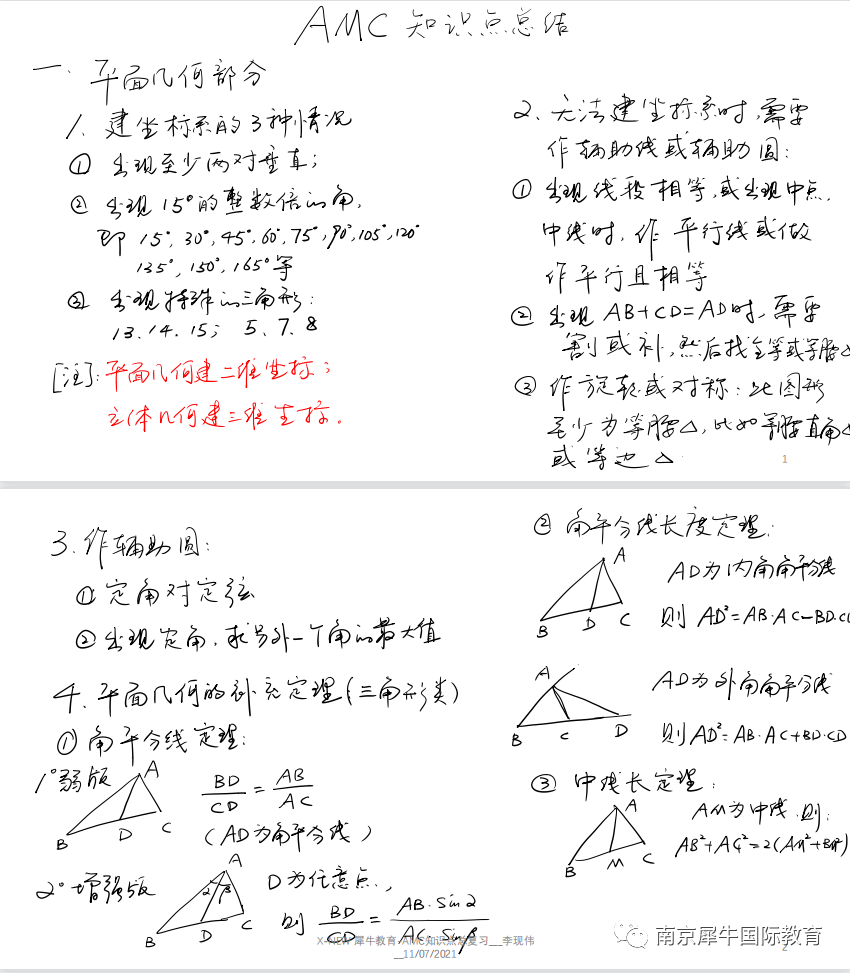 AMC 知识点总结
一. 平面几何部分
1. 建坐标系的3种情况
① 出现至少两对垂直;
② 出现15°的整数倍的角,
即 15°, 30°, 45°, 60°, 75°, 90°, 105°, 120°
135°, 150°, 165° 等
③ 出现特殊的三角形:
13. 14. 15; 5、7、8
[注]: 平面几何建二维坐标;
立体几何建三维坐标.
2. 无法建坐标系时, 需要
作辅助线或辅助圆:
① 出现线段相等, 或出现中点,
中线时, 作 平行线或做
作平行且相等
② 出现 AB+CD=AD时, 需要
割或补, 然后找全等或等腰△
③ 作旋转或对称: 此图形
至少为等腰△, 比如等腰直角△
或等边△
1
3. 作辅助圆:
① 定角对定弦
② 出现定角, 求另外一个角的最大值
4. 平面几何的补充定理(三角形类)
① 角平分线定理:
1° 弱版
A
B
D
C
BD/CD = AB/AC
(AD为角平分线)
2° 增强版
A
α β
B
D
C
D为任意点,
则 BD/CD = AB·sinα/AC·sinβ
② 角平分线长度定理:
A
B
D
C
AD为内角角平分线
则 AD²=AB·AC-BD·CD
A
B
C
D
AD为外角角平分线
则AD²=AB·AC+BD·CD
③ 中线长定理:
A
B
M
C
AM为中线 则:
AB²+AC²=2(AM²+BM²)
X-NEW 犀牛教育-AMC知识点总复习__李现伟
__11/07/2021
南京犀牛国际教育
2